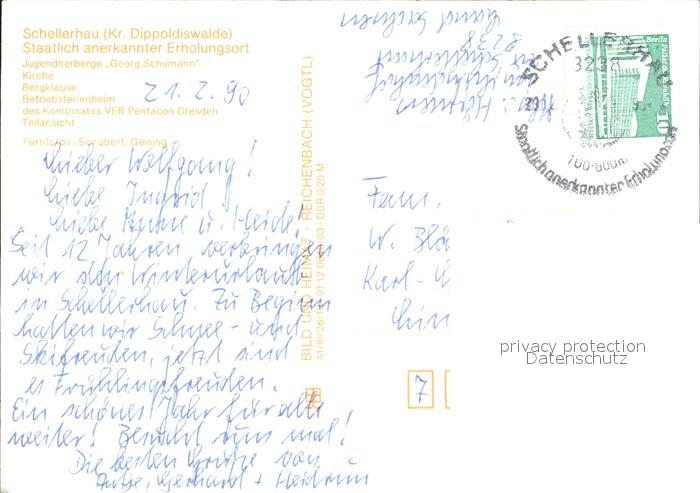 Schellerhau (Kr. Dippoldiswalde)
Staatlich anerkannter Erholungsort
Jugendherberge „Georg Schumann"
Kirche
Bergklause
Betriebsferienheim
des Kombinates VEB Pentacon Dresden
Teilansicht
Farbfotos: Schubert, Geising
21.2.90
Lieber Wolfgang!
Liebe Ingrid!
Liebe Anne u. Heide!
Seit 12 Jahren verbringen
wir den Winterurlaub
in Schellerhau. Zu Beginn
hatten wir Schnee- und
Skifreuden, jetzt sind
es Frühlingsfreuden.
Ein schönes Jahr für alle
weiter! Besucht uns mal!
Die besten Grüße von
Gerhard + Heidrun
BILD UND HEIMAT REICHENBACH (VOGTL)
A1/III/26/13 01 12 03 DDR 0,20 M
8238
SCHELLERHAU
8238
Staatlich anerkannter Erholungsort
Berlin
10
Fam.
W. Blä
Karl-
7
privacy protection
Datenschutz